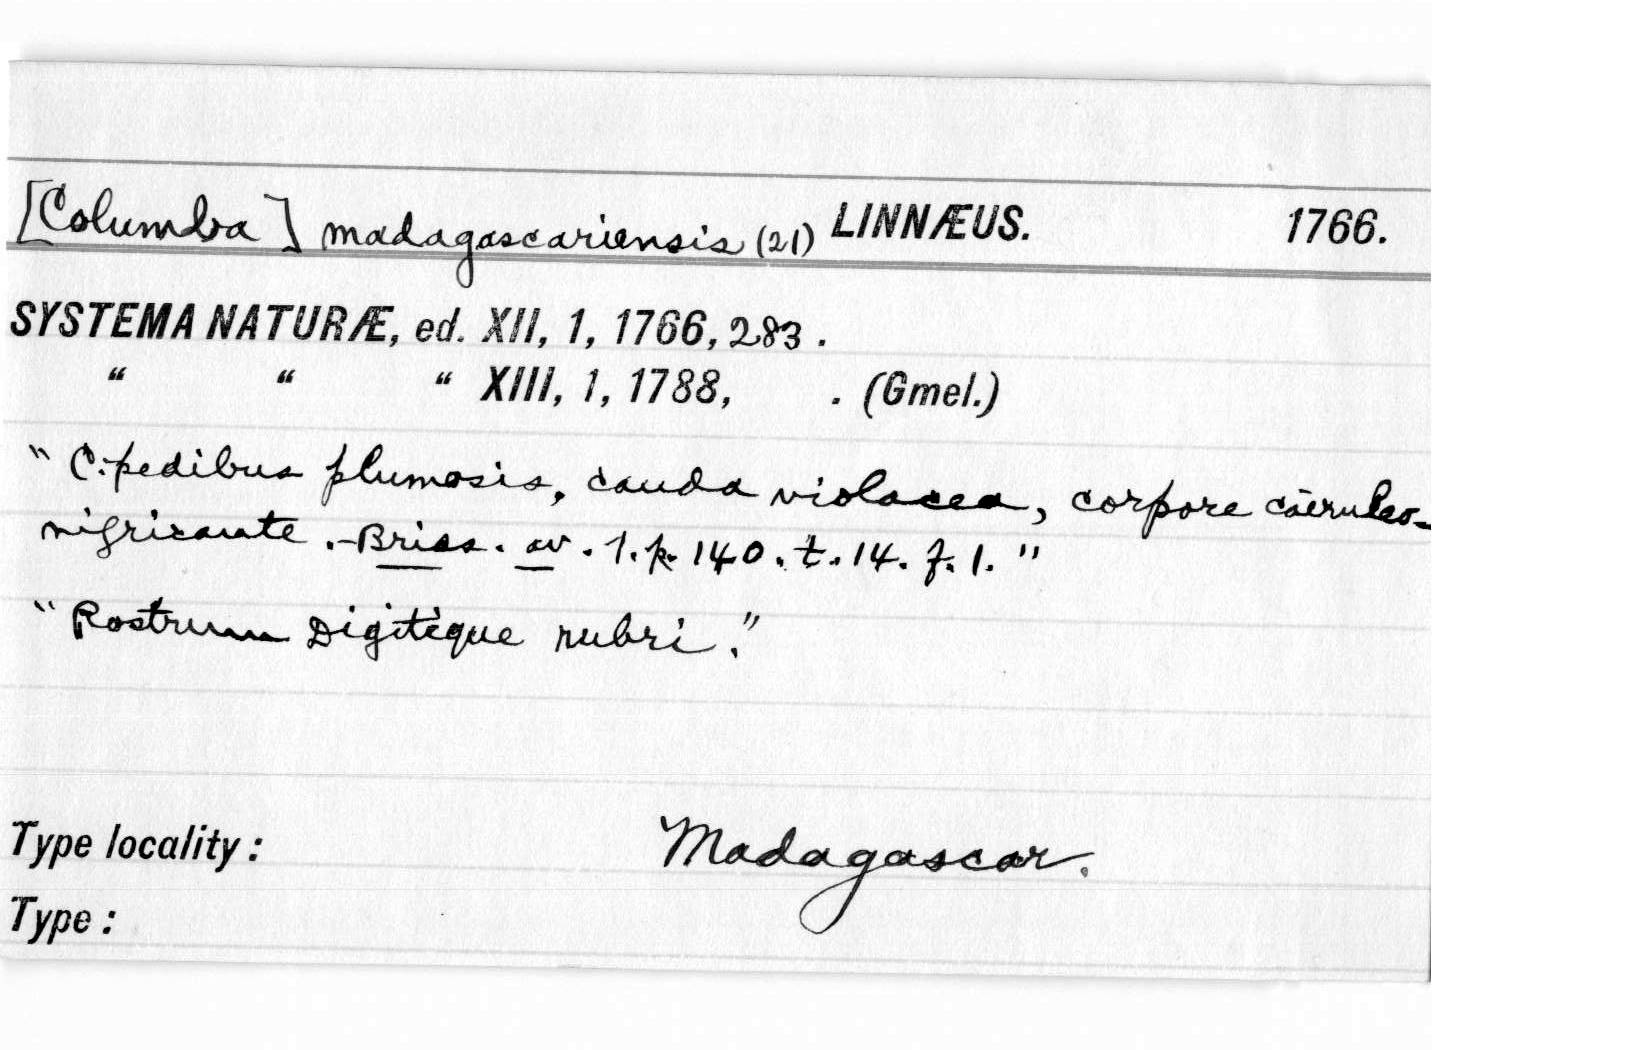 [Columba] madagascariensis (21) LINNÆUS. 1766.
SYSTEMA NATURÆ, ed. XII, 1, 1766, 283.
“ “ “ XIII, 1, 1788, . (Gmel.)
" C. pedibus plumosis, cauda violacea, corpore cœruleo-
nigricante. - Briss. av. 1. p. 140. t. 14. f. 1. "
" Rostrum Digitique rubri."
Type locality: Madagascar.
Type: